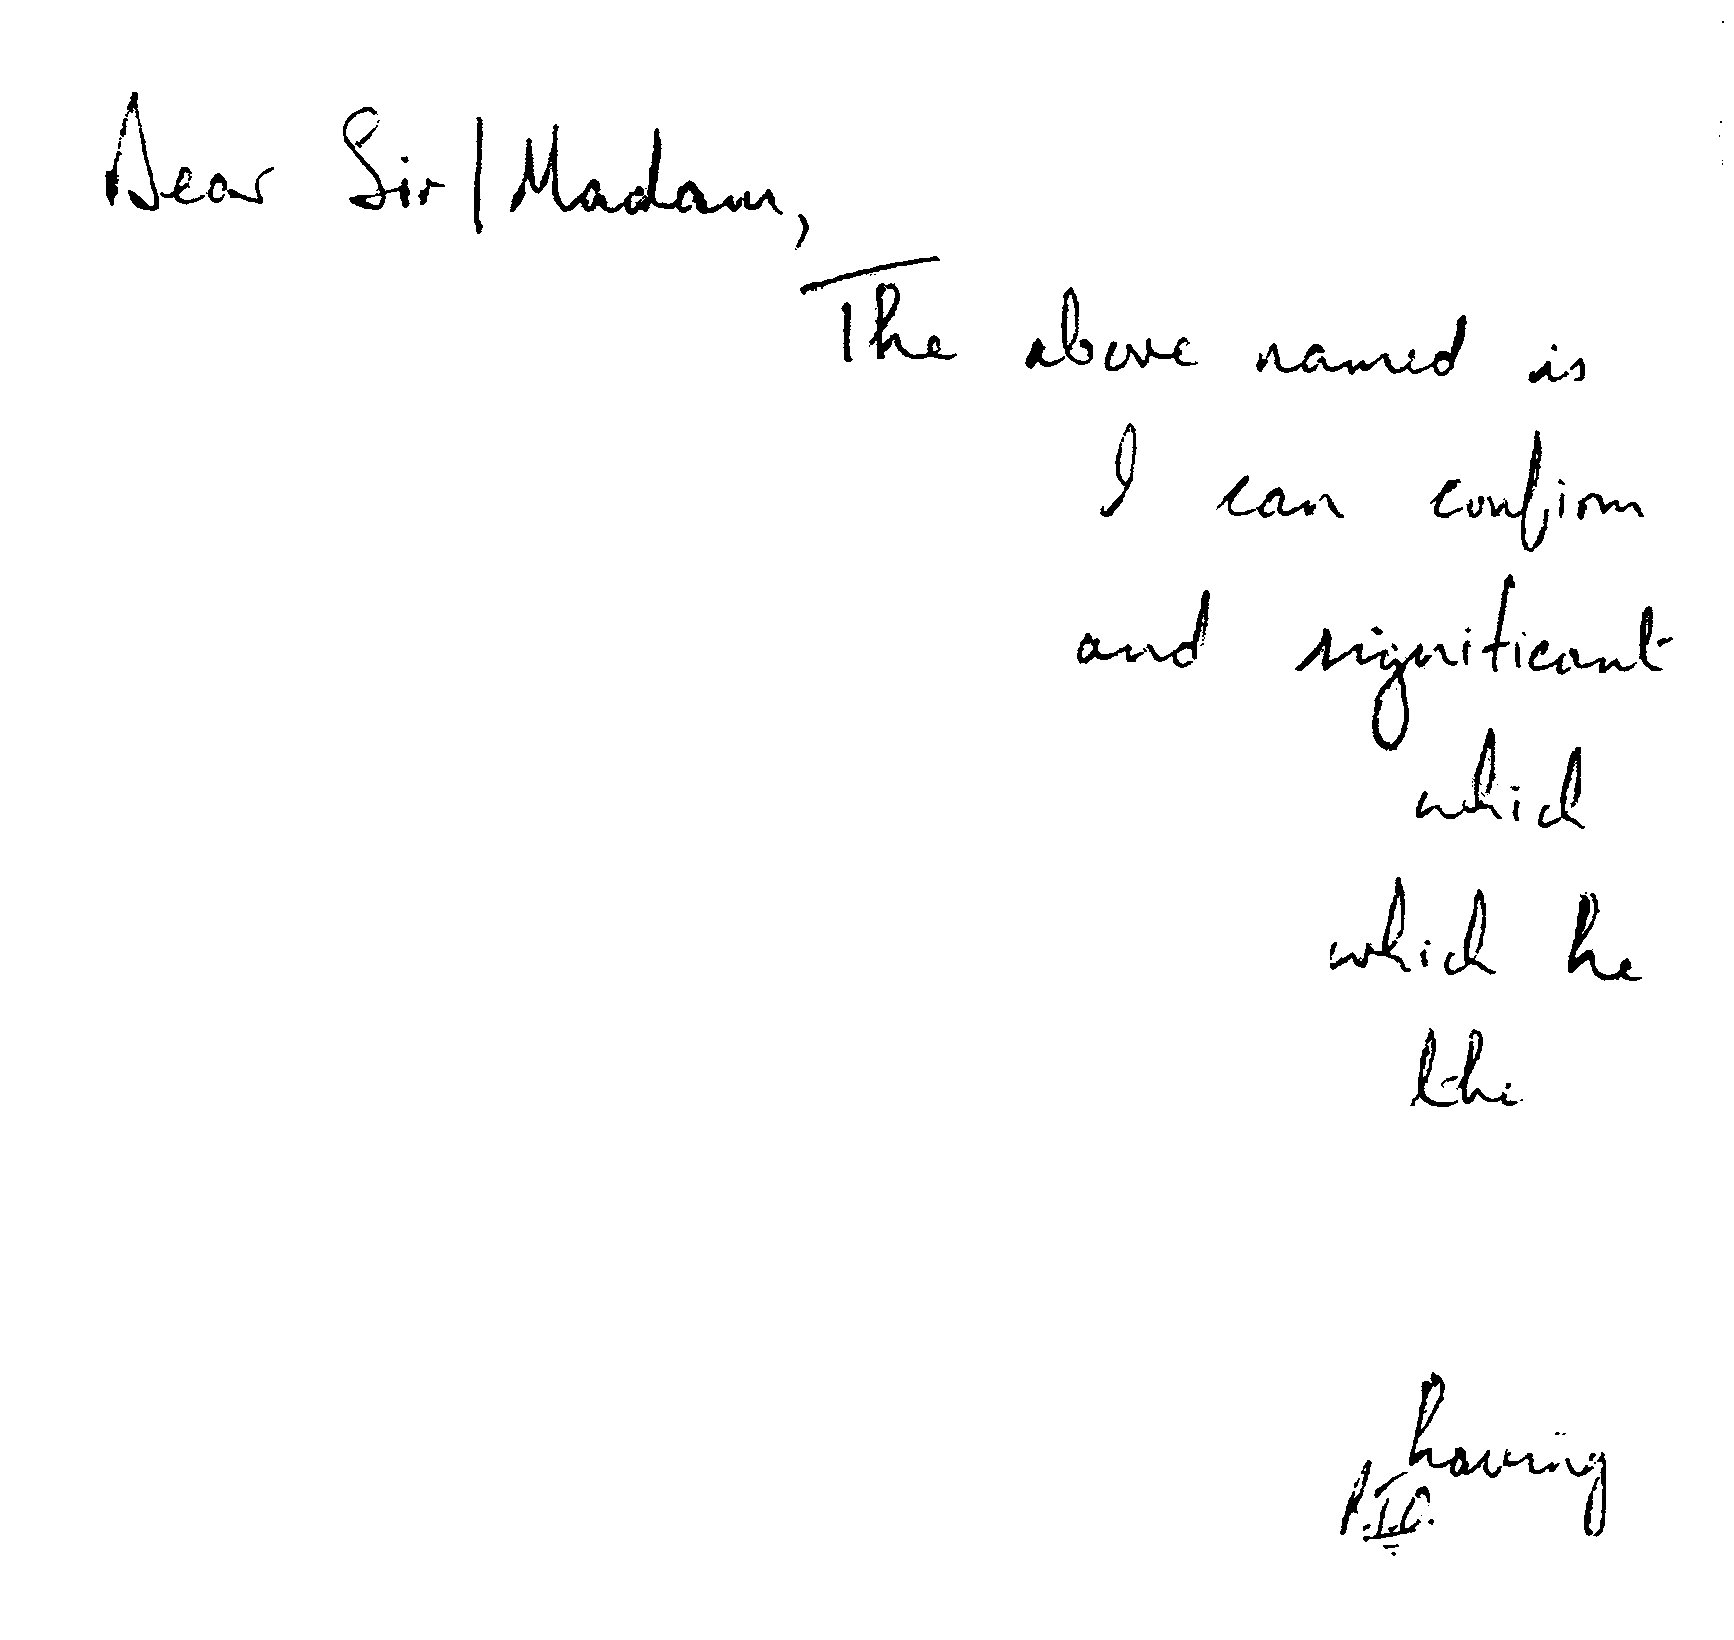 Dear Sir/Madam,
The above named is
I can confirm
and significant
which
which he
the
having
P.T.O.